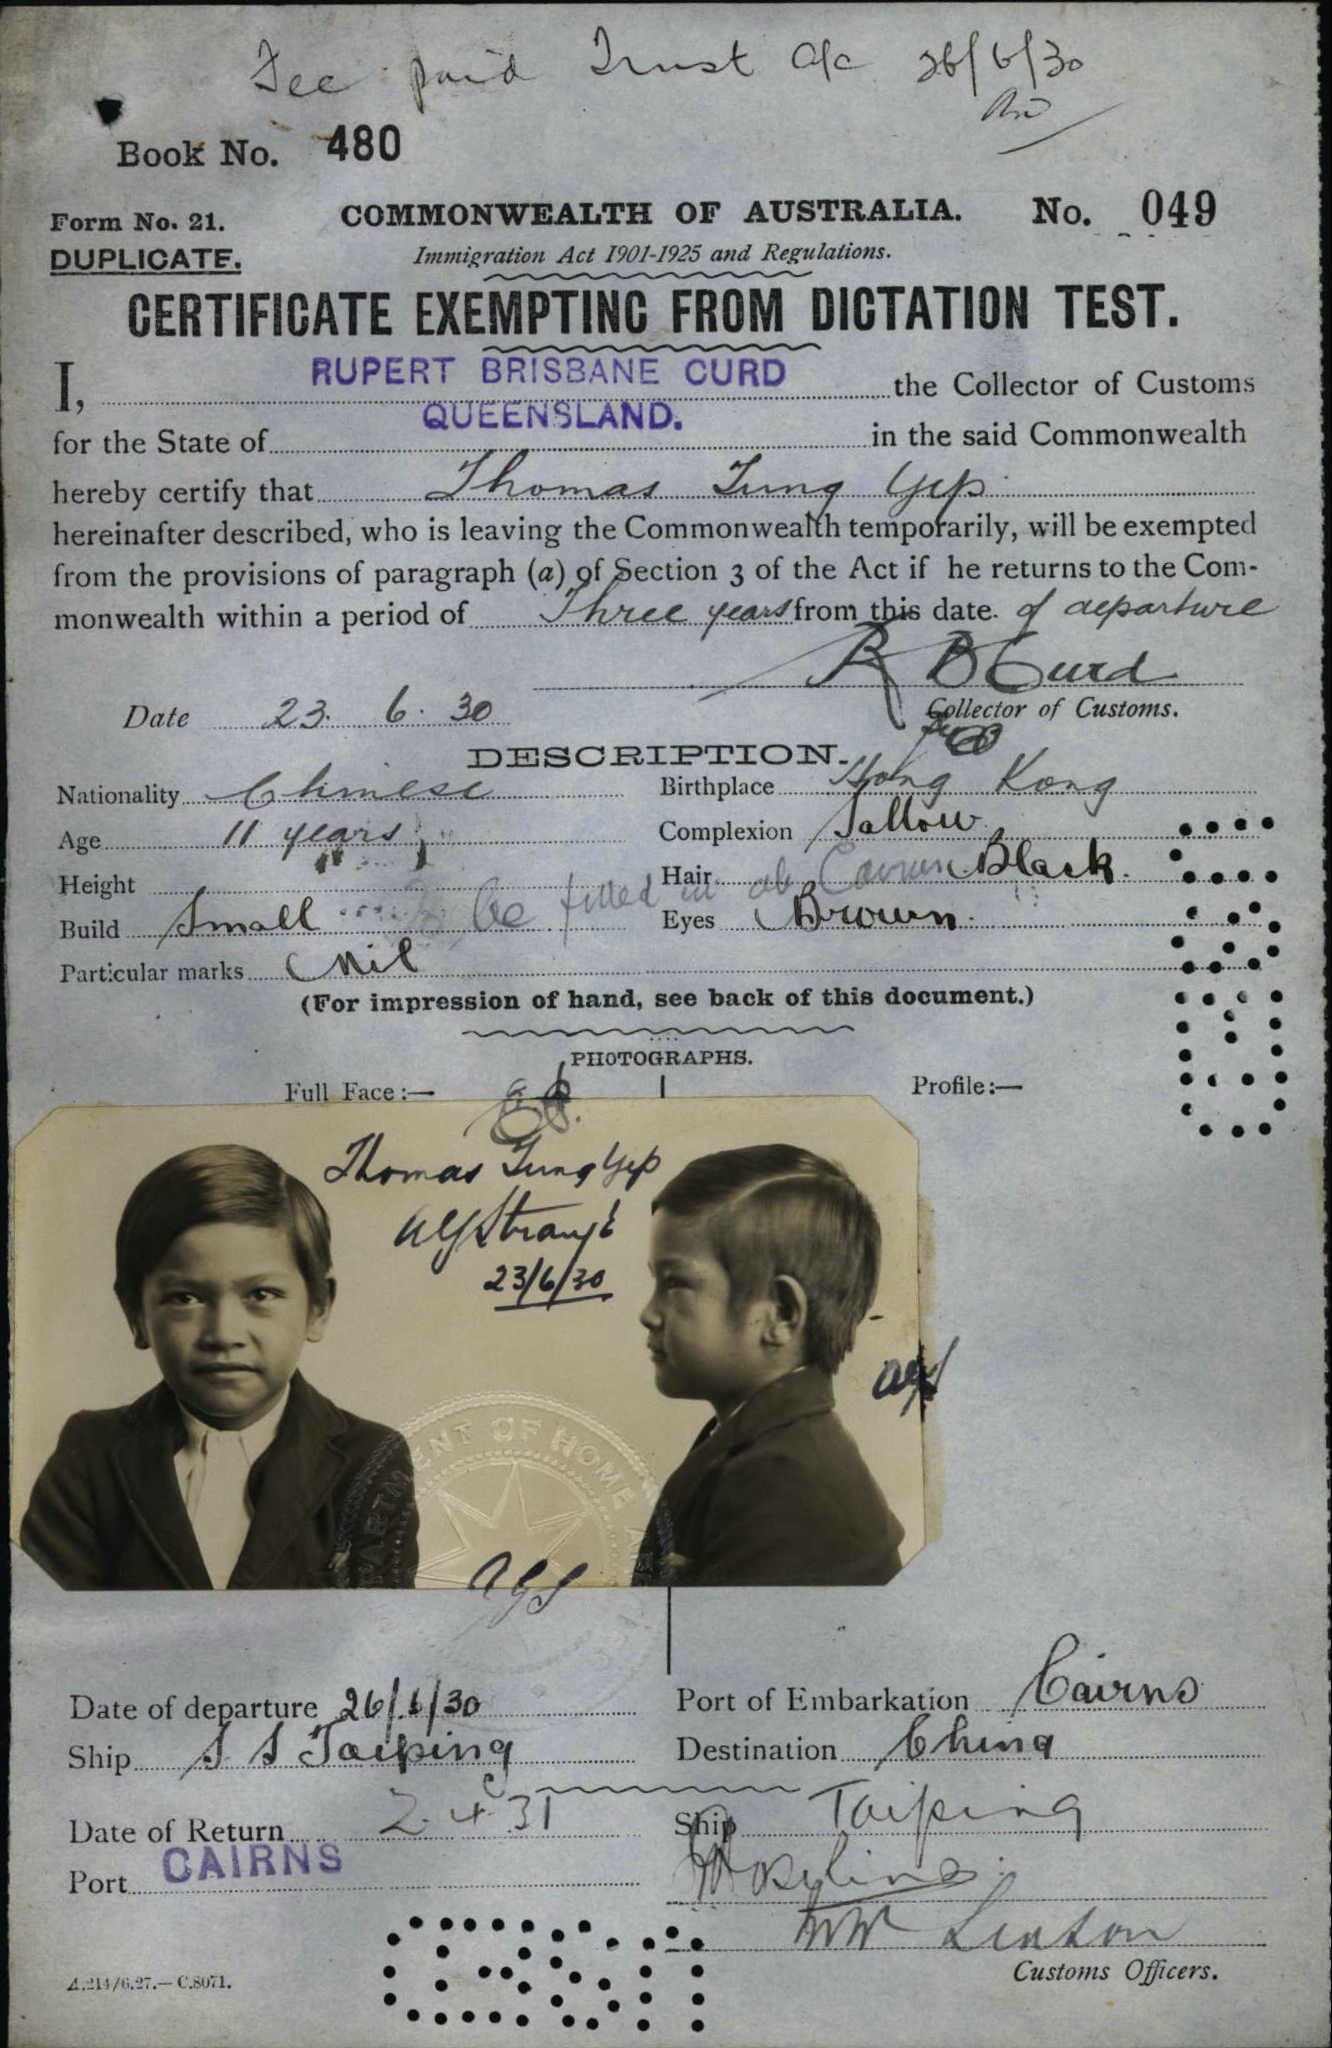 Fee paid Trust a/c 26/6/30
Book No. 480
Form No. 21. COMMONWEALTH OF AUSTRALIA. No. 049
DUPLICATE. Immigration Act 1901-1925 and Regulations.
CERTIFICATE EXEMPTING FROM DICTATION TEST.
I, RUPERT BRISBANE CURD the Collector of Customs
for the State of QUEENSLAND. in the said Commonwealth
hereby certify that Thomas Tung Yep
hereinafter described, who is leaving the Commonwealth temporarily, will be exempted
from the provisions of paragraph (a) of Section 3 of the Act if he returns to the Com-
monwealth within a period of Three years from this date of departure
R B Curd
Date 23. 6. 30 Collector of Customs.
DESCRIPTION.
Nationality Chinese Birthplace Hong Kong
Age 11 years Complexion Sallow
Height Hair Black.
be filled in at Cairns
Build Small Eyes Brown
Particular marks Nil
(For impression of hand, see back of this document.)
PHOTOGRAPHS.
Full Face:— Profile:—
Thomas Tung Yep
23/6/30
AGS
DEPARTMENT OF HOME
AGS
Date of departure 26/6/30 Port of Embarkation Cairns
Ship S S Taiping Destination China
Date of Return 2.4.31 Ship Taiping
Port CAIRNS
Linton
A.214/6.27.—C.8071. Customs Officers.